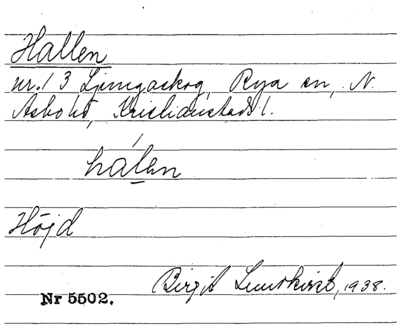 Hallen
nr. 1 3 Ljungaskog, Rya sn, N.
Åsbo hd, Kristianstads l.
hálen
Höjd
Birgit Lundkvist, 1938.
Nr 5502.